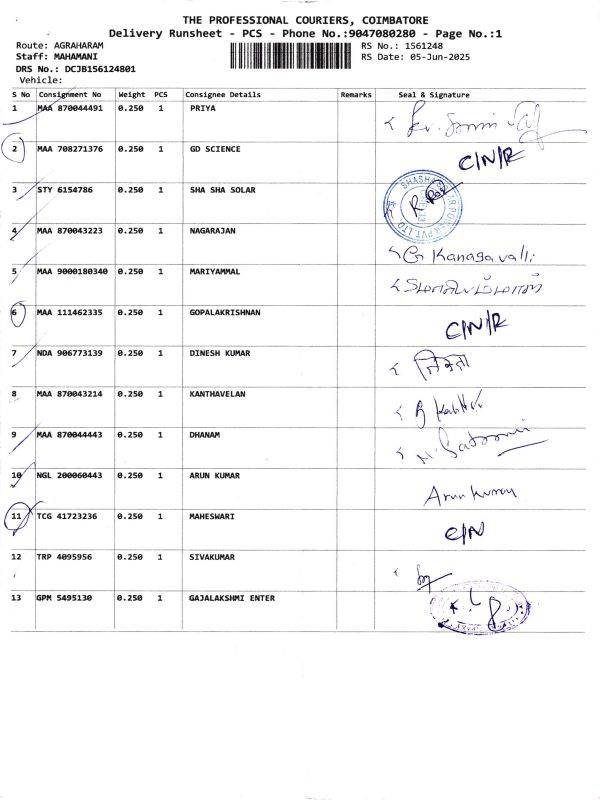 THE PROFESSIONAL COURIERS, COIMBATORE
Delivery Runsheet - PCS - Phone No.:9047080280 - Page No.:1
Route: AGRAHARAM RS No.: 1561248
Staff: MAHAMANI RS Date: 05-Jun-2025
DRS No.: DCJB156124801
Vehicle:
S No Consignment No Weight PCS Consignee Details Remarks Seal & Signature
1 MAA 870044491 0.250 1 PRIYA
2 MAA 708271376 0.250 1 GD SCIENCE C/N/R
3 STY 6154786 0.250 1 SHA SHA SOLAR
4 MAA 870043223 0.250 1 NAGARAJAN G Kanagavalli
5 MAA 9000180340 0.250 1 MARIYAMMAL
6 MAA 111462335 0.250 1 GOPALAKRISHNAN C/N/R
7 NDA 906773139 0.250 1 DINESH KUMAR
8 MAA 870043214 0.250 1 KANTHAVELAN
9 MAA 870044443 0.250 1 DHANAM
10 NGL 200060443 0.250 1 ARUN KUMAR Arun kumar
11 TCG 41723236 0.250 1 MAHESWARI C/N
12 TRP 4095956 0.250 1 SIVAKUMAR
13 GPM 5495130 0.250 1 GAJALAKSHMI ENTER